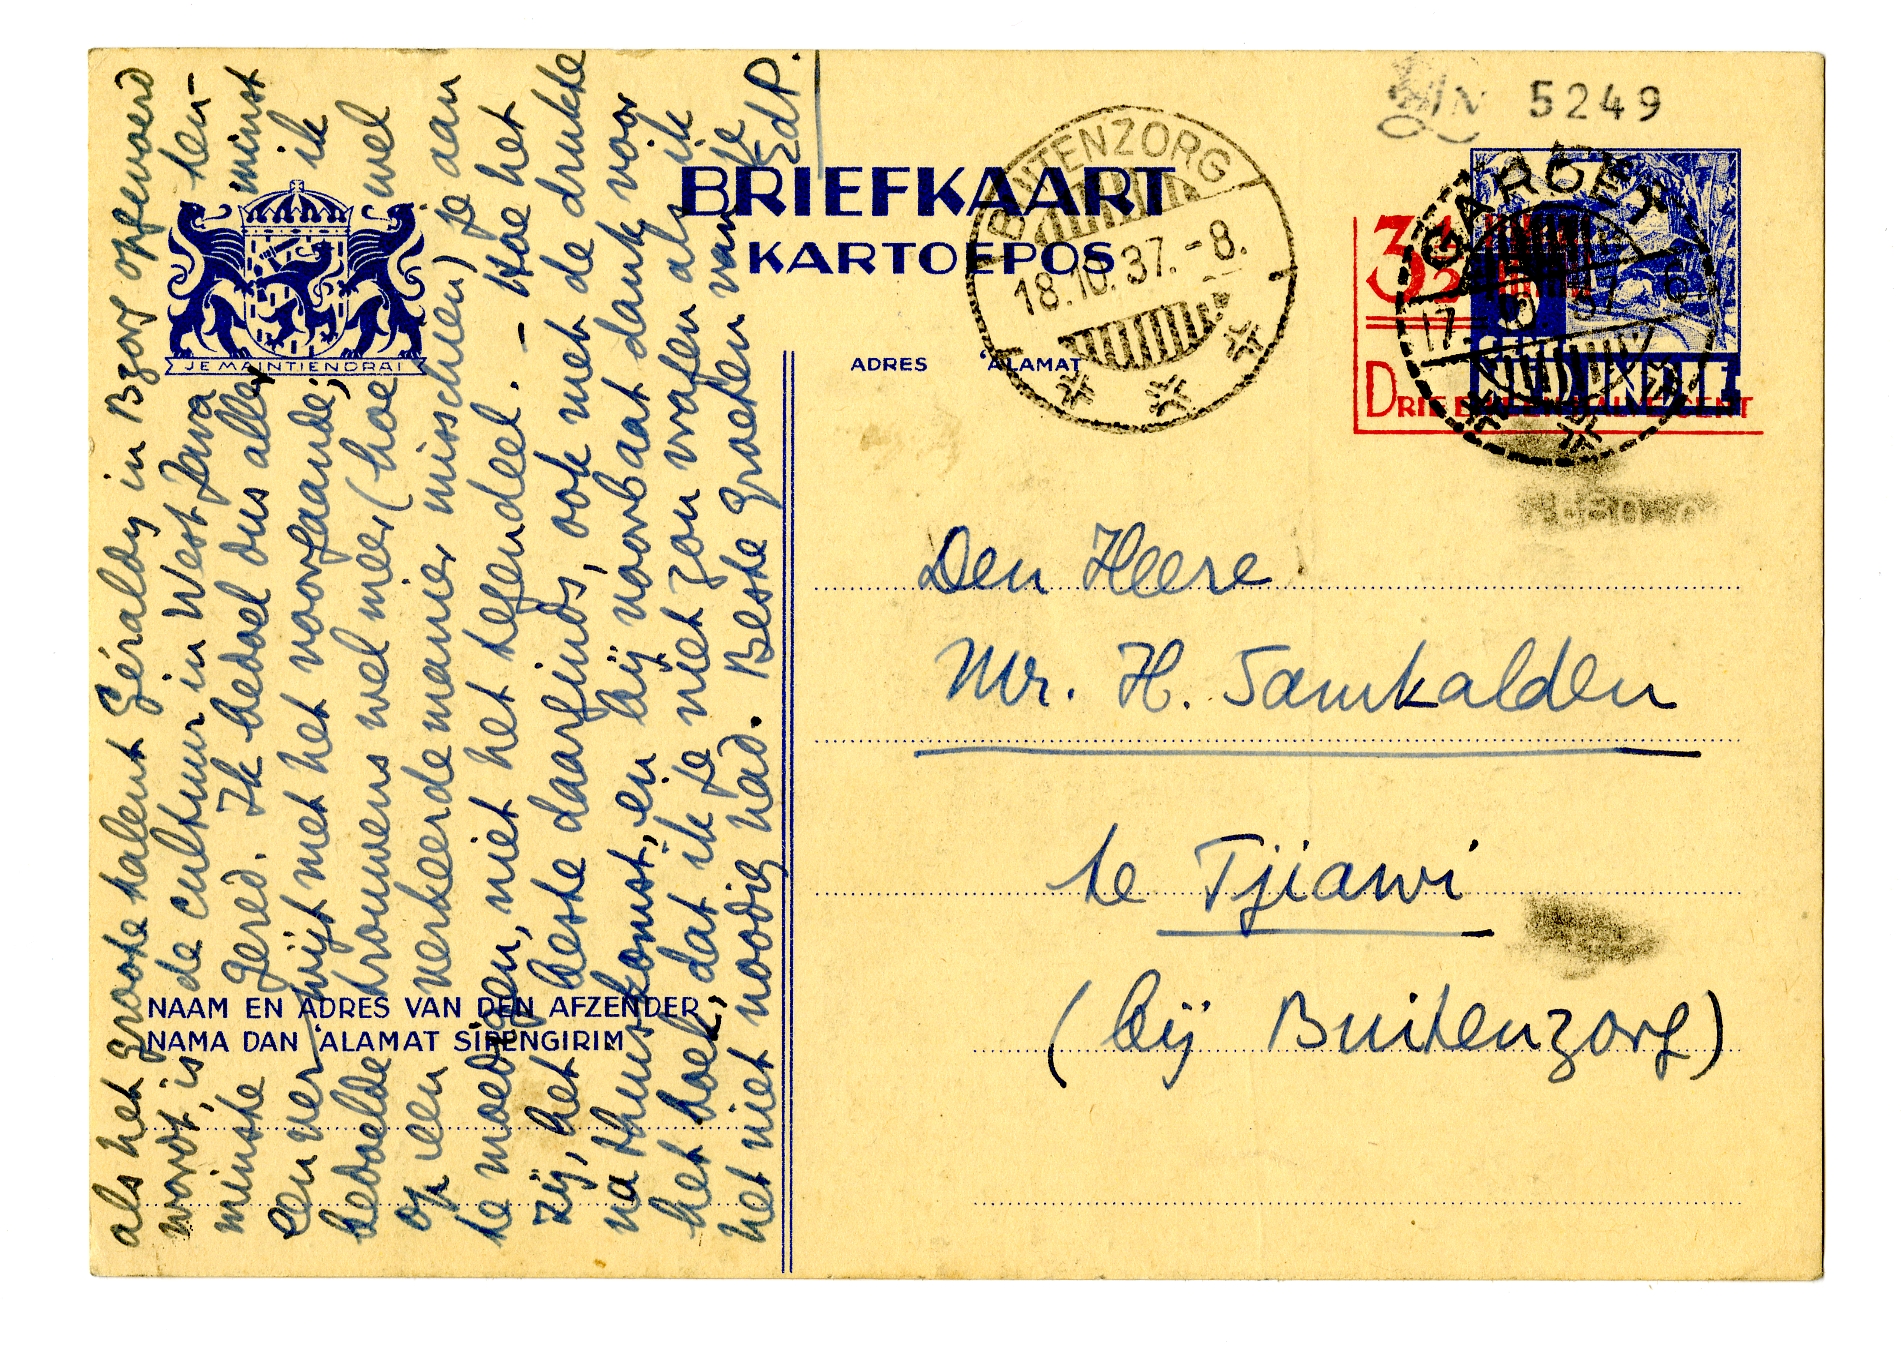 als het groote talent Géraldy in Bzorg opgevoerd
wordt, is de cultuur in West Java ten-
minste gered. Ik bedoel dus aller minst
een verwijt met het voorgaande; ik
bedoelde trouwens wel meer (hoe wel
op een verkeerde manier misschien) je aan
te moedigen, niet het tegendeel. – Hoe het
zij, het beste daarginds, ook met de drukte
na thuiskomst, en bij voorbaat dank voor
het boek, dat ik je niet zou vragen als ik
het niet noodig had. Beste groeten van je
EdP.
JE MAINTIENDRAI
BRIEFKAART
KARTOEPOS
ADRES 'ALAMAT
NAAM EN ADRES VAN DEN AFZENDER
NAMA DAN 'ALAMAT SIPENGIRIM
BUITENZORG
18.10.37.-8.
5249
GAROET
17
37
3½
DRIE EN EEN HALVE CENT
NED. INDIE
Den Heere
Mr. H. Samkalden
te Tjiawi
(bij Buitenzorg)